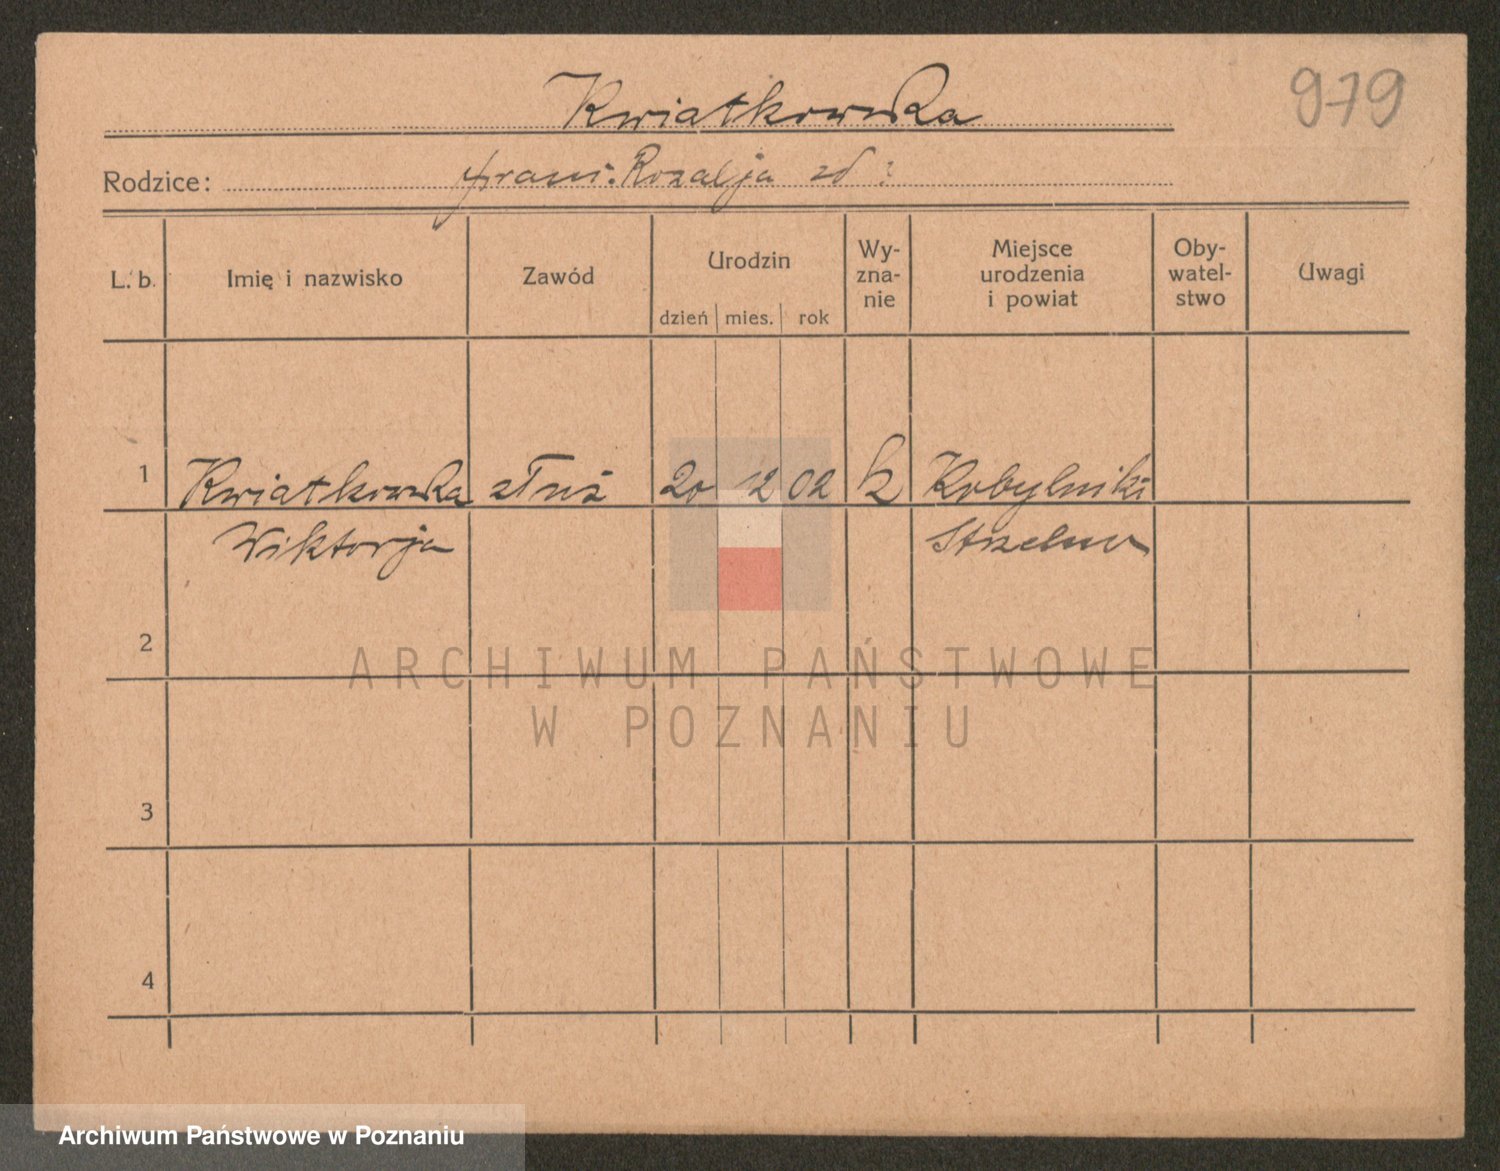 Kwiatkowska
979
Rodzice: Franc. Rozalja zd ?
L. b. Imię i nazwisko Zawód Urodzin Wy- Miejsce Oby- Uwagi
zna- urodzenia watel-
nie i powiat stwo
dzień mies. rok
1 Kwiatkowska służ 20 12 02 k Kobylniki
Wiktorja Strzelno
2
ARCHIWUM PAŃSTWOWE
W POZNANIU
3
4
Archiwum Państwowe w Poznaniu